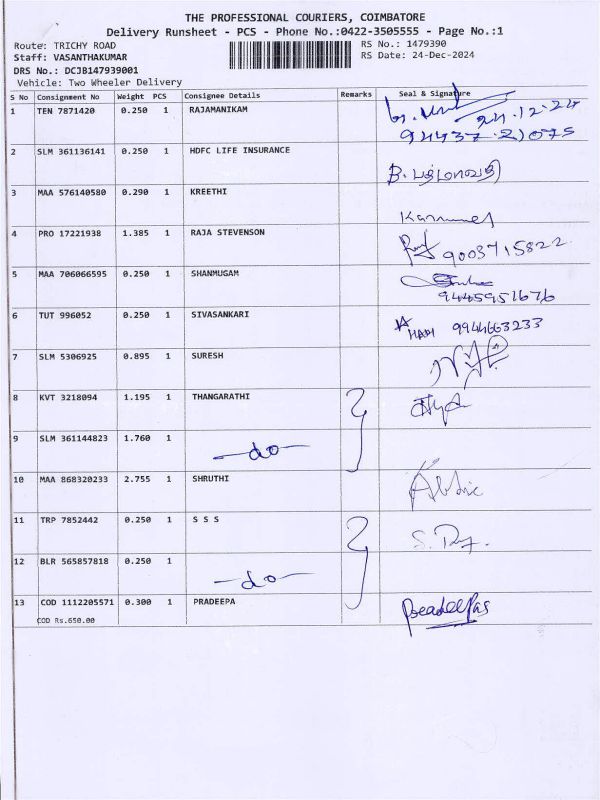 THE PROFESSIONAL COURIERS, COIMBATORE
Delivery Runsheet - PCS - Phone No.:0422-3505555 - Page No.:1
Route: TRICHY ROAD RS No.: 1479390
Staff: VASANTHAKUMAR RS Date: 24-Dec-2024
DRS No.: DCJB147939001
Vehicle: Two Wheeler Delivery
S No Consignment No Weight PCS Consignee Details Remarks Seal & Signature
1 TEN 7871420 0.250 1 RAJAMANIKAM 24.12.24
94437-21075
2 SLM 361136141 0.250 1 HDFC LIFE INSURANCE B. பத்மாவதி
3 MAA 576140580 0.290 1 KREETHI
4 PRO 17221938 1.385 1 RAJA STEVENSON 9003715822
5 MAA 706066595 0.250 1 SHANMUGAM
9445951676
6 TUT 996052 0.250 1 SIVASANKARI HARI 9944663233
7 SLM 5306925 0.895 1 SURESH
8 KVT 3218094 1.195 1 THANGARATHI
9 SLM 361144823 1.760 1 -do-
10 MAA 868320233 2.755 1 SHRUTHI
11 TRP 7852442 0.250 1 S S S
12 BLR 565857818 0.250 1 -do-
13 COD 1112205571 0.300 1 PRADEEPA
COD Rs.650.00